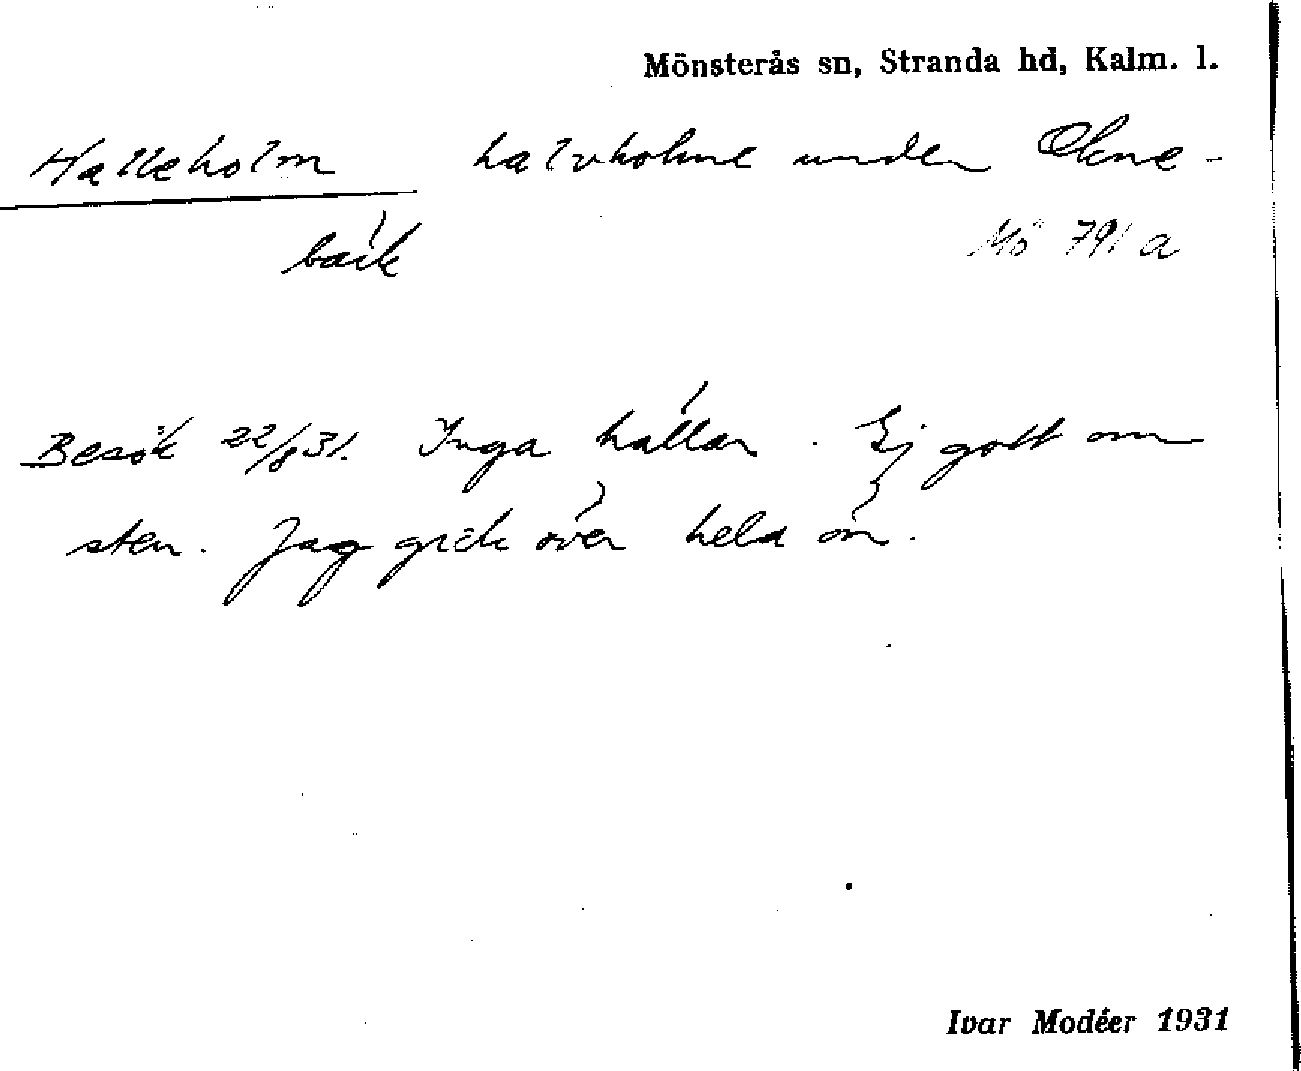 Mönsterås sn, Stranda hd, Kalm. l.
Halleholm halvholme under Okne-
bäck
Mö 791 a
Besök 22/8 31. Inga hällar. Ej gott om
sten. Jag gick över hela ön.
Ivar Modéer 1931